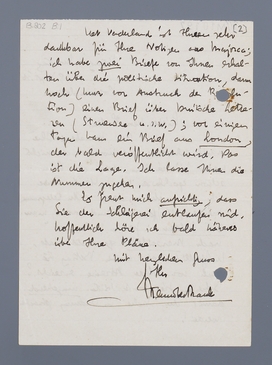 (2)
Het Vaderland ist Ihnen sehr
dankbar für Ihre Notizen aus Majorca;
ich habe zwei Briefe von Ihnen erhal-
ten über die politische Situation, dann
noch (kurz vor Ausbruch der Revolu-
tion) einen Brief über
(u.s.w.); vor einigen
Tagen kam ein Brief aus London,
der bald veröffentlicht wird. Das
ist die Lage. Ich lasse Ihnen die
Nummern zugehen.
Es freut mich aufrichtig, dass
Sie der Schlägerei entlaufen sind.
Hoffentlich höre ich bald Näheres
über Ihre Pläne.
Mit herzlichem Gruss
Ihr
Menno ter Braak